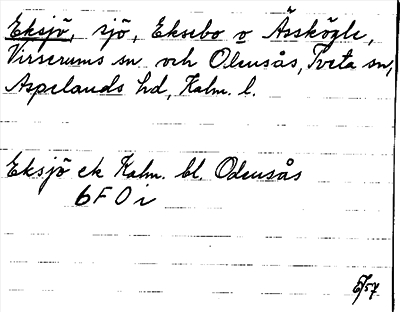 Eksjö, sjö, Eksebo o Åsskögle,
Virserums sn och Odensås, Tveta sn,
Aspelands hd, Kalm. l.
Eksjö ek Kalm. bl. Odensås
6 F O i
/57